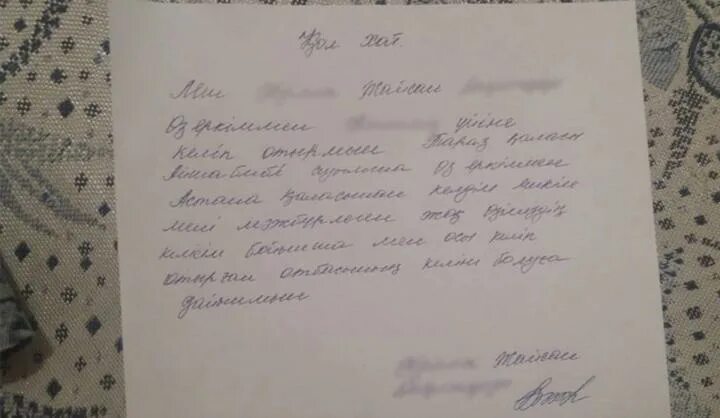 Қол хат.
Мен Жайсан
Өз еркіммен үйіне
келіп отырмын Тараз қаласы
Айша бибі ауылына өз еркіммен
Астана қаласынан келдім ешкім
мені мәжбүрлеген жоқ Өзіміздің
келісім бойынша мен осы келіп
отырған отбасының келіні болуға
дайынмын
Жайсан